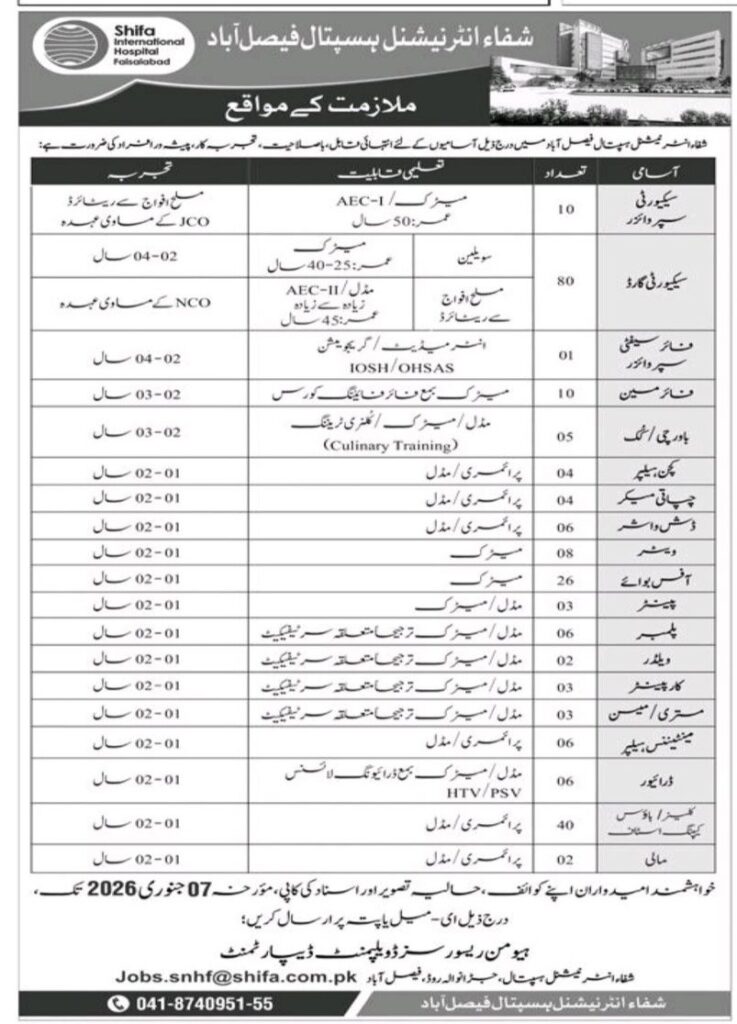 Shifa
International
Hospital
Faisalabad
شفاء انٹرنیشنل ہسپتال فیصل آباد
ملازمت کے مواقع
شفاء انٹرنیشنل ہسپتال فیصل آباد میں درج ذیل آسامیوں کے لئے انتہائی قابل، باصلاحیت، تجربہ کار، پیشہ ور افراد کی ضرورت ہے:
آسامی تعداد تعلیمی قابلیت تجربہ
سیکیورٹی سپروائزر 10 میٹرک/AEC-I عمر:50 سال مسلح افواج سے ریٹائرڈ JCO کے مساوی عہدہ
سیکیورٹی گارڈ 80 سویلین میٹرک عمر:25-40 سال 02-04 سال
مسلح افواج سے ریٹائرڈ مڈل/AEC-II زیادہ سے زیادہ عمر:45 سال NCO کے مساوی عہدہ
فائر سیفٹی سپروائزر 01 انٹرمیڈیٹ/گریجویشن IOSH/OHSAS 02-04 سال
فائر مین 10 میٹرک بمع فائر فائیٹنگ کورس 02-03 سال
باورچی/کک 05 مڈل/میٹرک/کلنری ٹریننگ (Culinary Training) 02-03 سال
کچن ہیلپر 04 پرائمری/مڈل 01-02 سال
چپاتی میکر 04 پرائمری/مڈل 01-02 سال
ڈش واشر 06 پرائمری/مڈل 01-02 سال
ویٹر 08 میٹرک 01-02 سال
آفس بوائے 26 میٹرک 01-02 سال
پینٹر 03 مڈل/میٹرک 01-02 سال
پلمبر 06 مڈل/میٹرک ترجیحا متعلقہ سرٹیفکیٹ 01-02 سال
ویلڈر 02 مڈل/میٹرک ترجیحا متعلقہ سرٹیفکیٹ 01-02 سال
کارپینٹر 03 مڈل/میٹرک ترجیحا متعلقہ سرٹیفکیٹ 01-02 سال
مستری/میسن 03 مڈل/میٹرک ترجیحا متعلقہ سرٹیفکیٹ 01-02 سال
مینٹیننس ہیلپر 06 پرائمری/مڈل 01-02 سال
ڈرائیور 06 مڈل/میٹرک بمع ڈرائیونگ لائسنس HTV/PSV 01-02 سال
کلینر/ہاؤس کیپنگ اسٹاف 40 پرائمری/مڈل 01-02 سال
مالی 02 پرائمری/مڈل 01-02 سال
خواہشمند امیدواران اپنے کوائف، حالیہ تصویر اور اسناد کی کاپی، مؤرخہ 07 جنوری 2026 تک،
درج ذیل ای-میل یا پتہ پر ارسال کریں:
ہیومن ریسورسز ڈویلپمنٹ ڈیپارٹمنٹ
شفاء انٹرنیشنل ہسپتال، جڑانوالہ روڈ، فیصل آباد Jobs.snhf@shifa.com.pk
شفاء انٹرنیشنل ہسپتال فیصل آباد 041-8740951-55